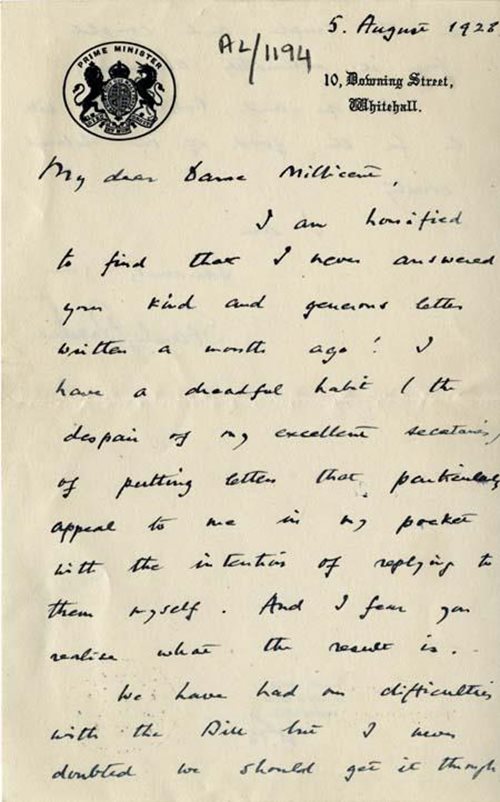 5. August 1928
AL/1194
PRIME MINISTER
10, Downing Street,
Whitehall.
My dear Dame Millicent,
I am horrified
to find that I never answered
your kind and generous letter
written a month ago! I
have a dreadful habit (the
despair of my excellent secretaries)
of putting letters that particularly
appeal to me in my pocket
with the intention of replying to
them myself. And I fear you
realise what the result is.
We have had our difficulties
with the Bill but I never
doubted we should get it through